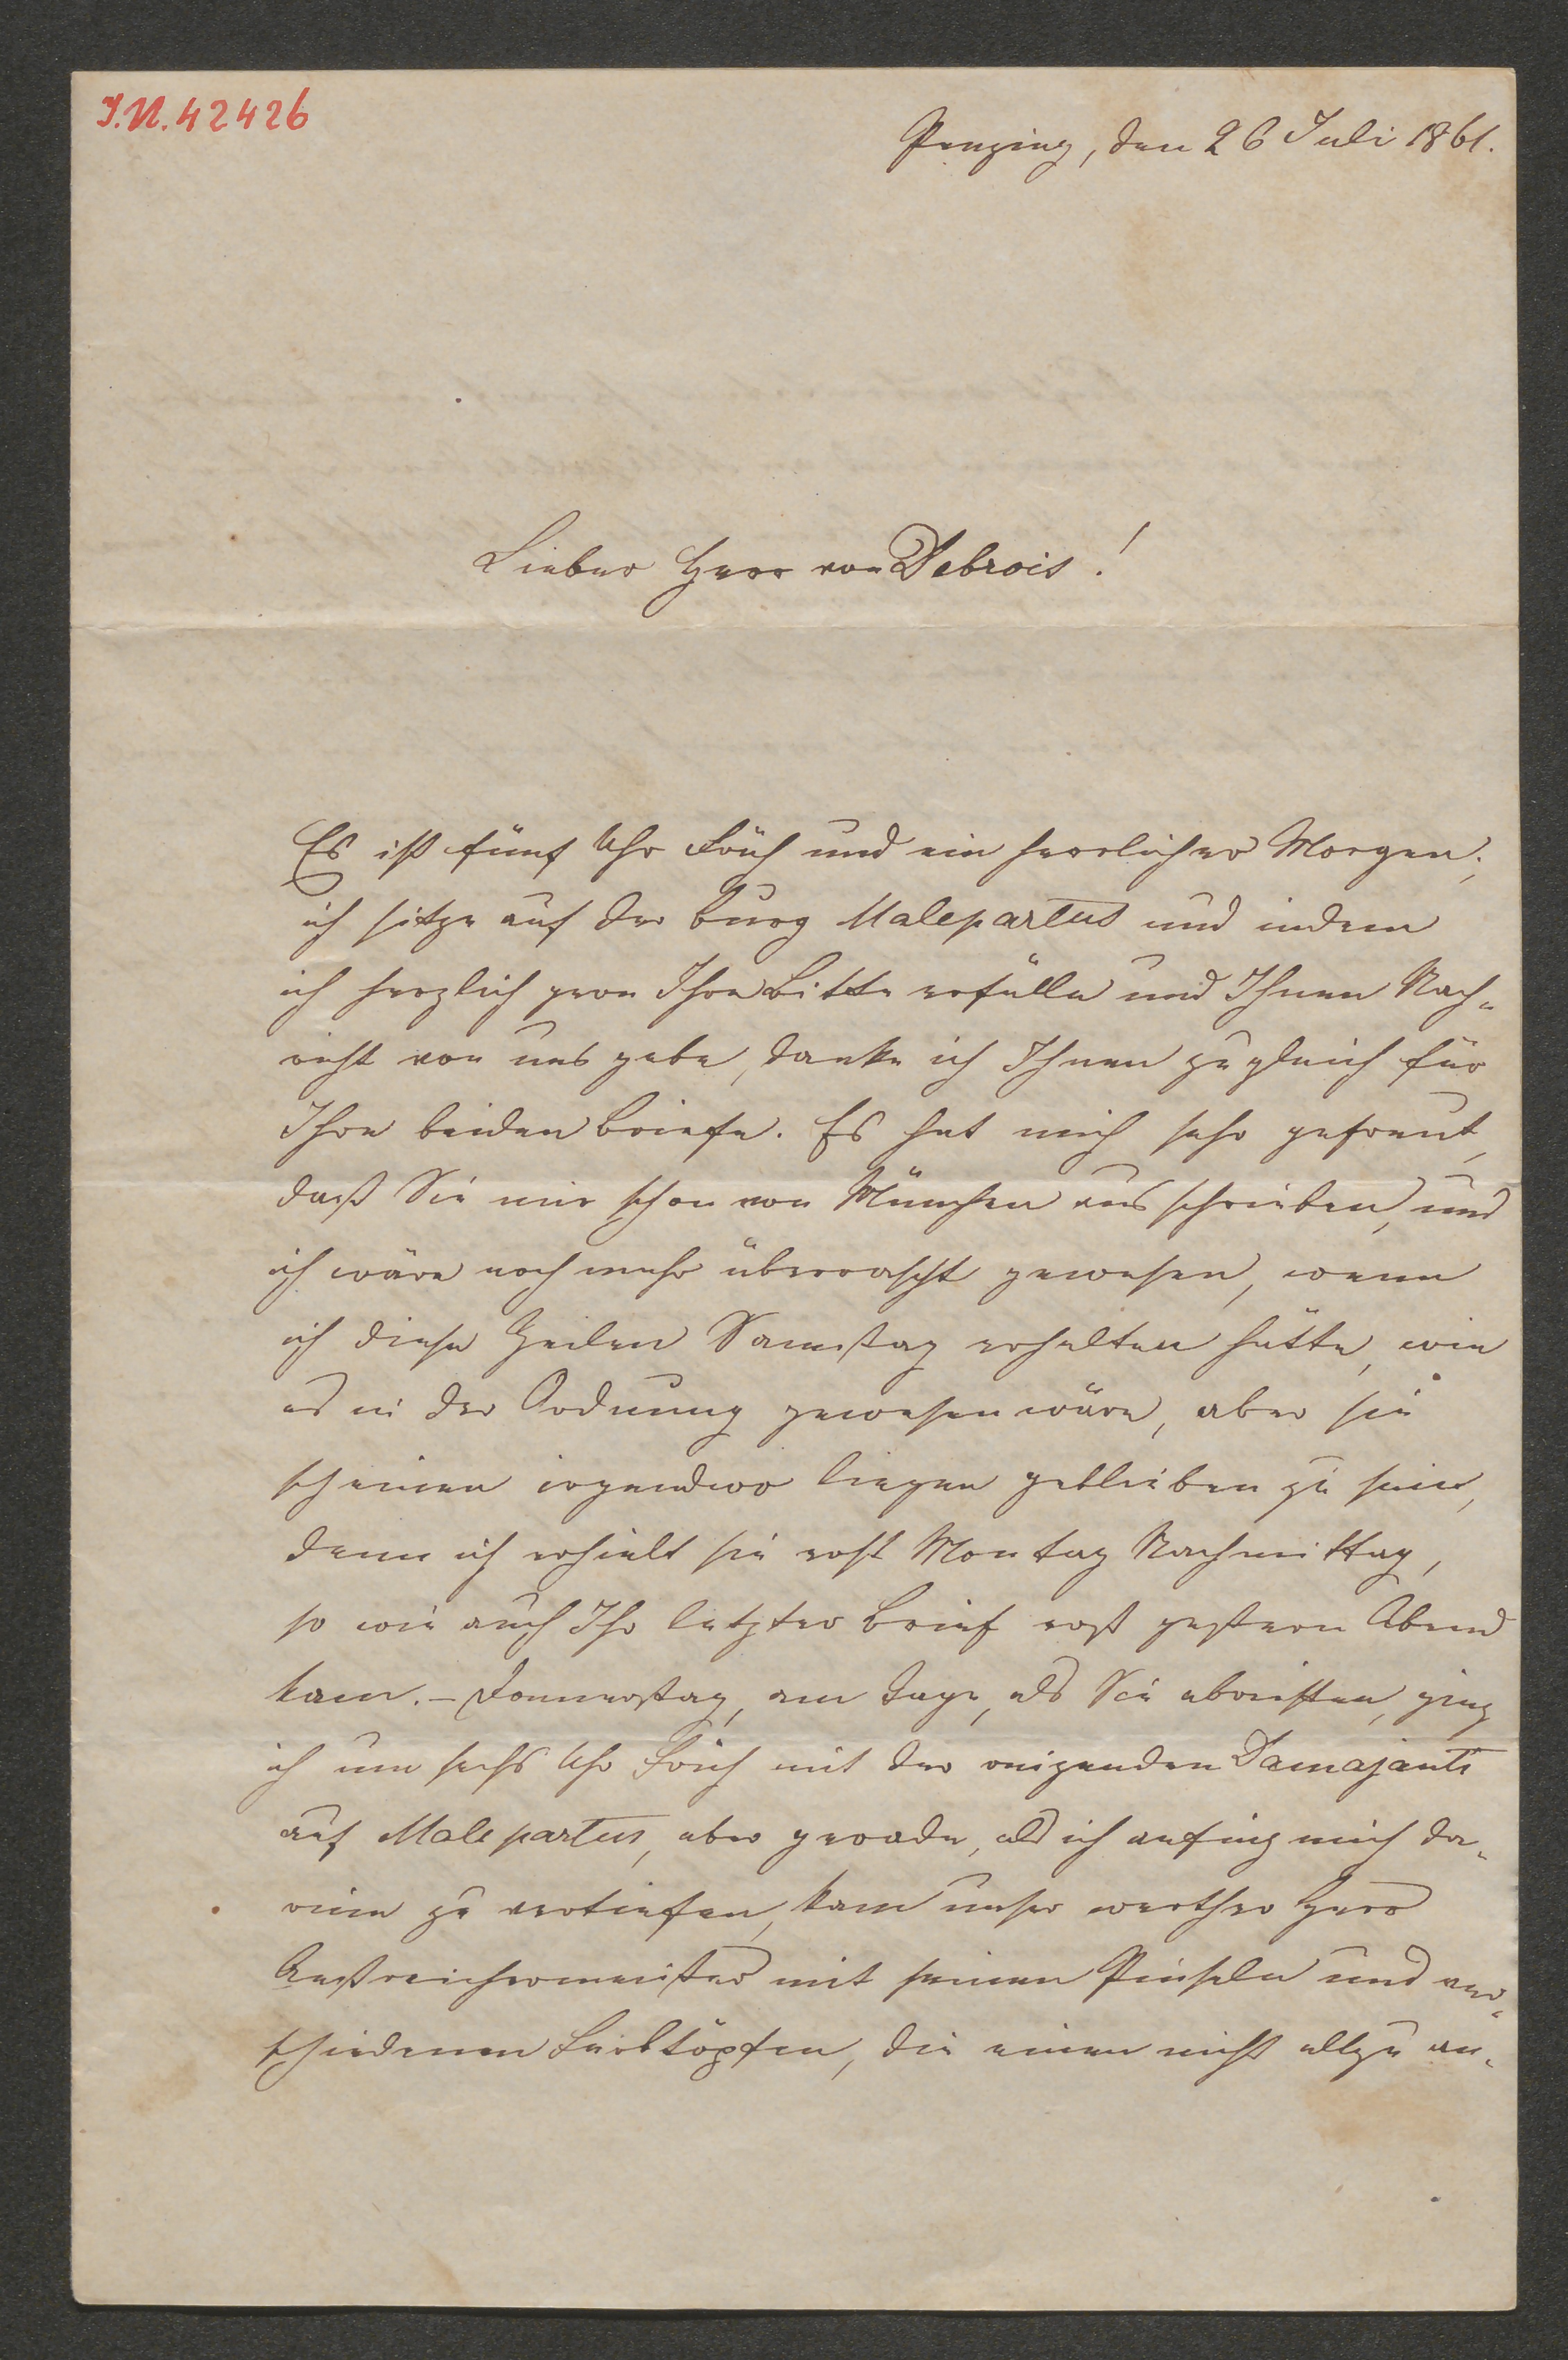 I.N. 42426
Penzing, den 26 Juli 1861.
Lieber Herr von Debrois!
Es ist fünf Uhr Früh und ein herrlicher Morgen;
ich sitze auf der Burg Malepartus und indem
ich herzlich gern Ihre Bitte erfülle und Ihnen Nach-
richt von uns gebe, danke ich Ihnen zugleich für
Ihre beiden Briefe. Es hat mich sehr gefreut,
daß Sie mir schon von München aus schrieben, und
ich wäre noch mehr überrascht gewesen, wenn
ich diese Zeilen Samstag erhalten hätte, wie
es in der Ordnung gewesen wäre, aber sie
scheinen irgendwo liegen geblieben zu sein,
denn ich erhielt sie erst Montag Nachmittag,
so wie auch Ihr letzter Brief erst gestern Abend
kam. – Donnerstag, am Tage, als Sie abreisten, ging
ich um sechs Uhr Früh mit der reizenden Damajanti
auf Malepartus, aber gerade, als ich anfing mich da-
rein zu vertiefen, kam unser werther Herr
Anstreichermeister mit seinen Pinseln und ver-
schiedenen Farbtöpfen, die einen nicht allzu an-